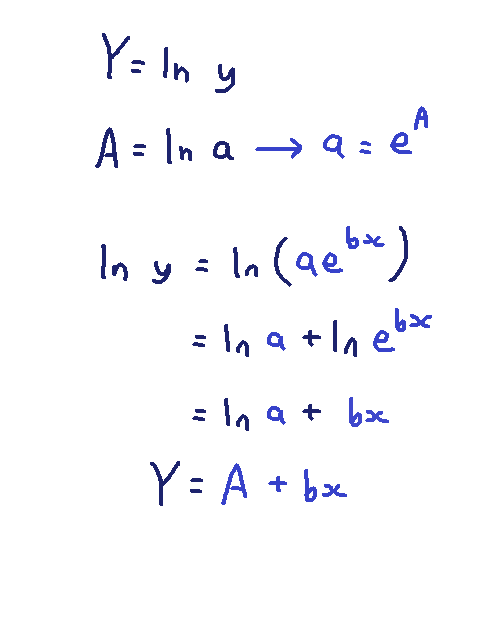 Y = ln y
A = ln a → a = e^A
ln y = ln(ae^bx)
= ln a + ln e^bx
= ln a + bx
Y = A + bx